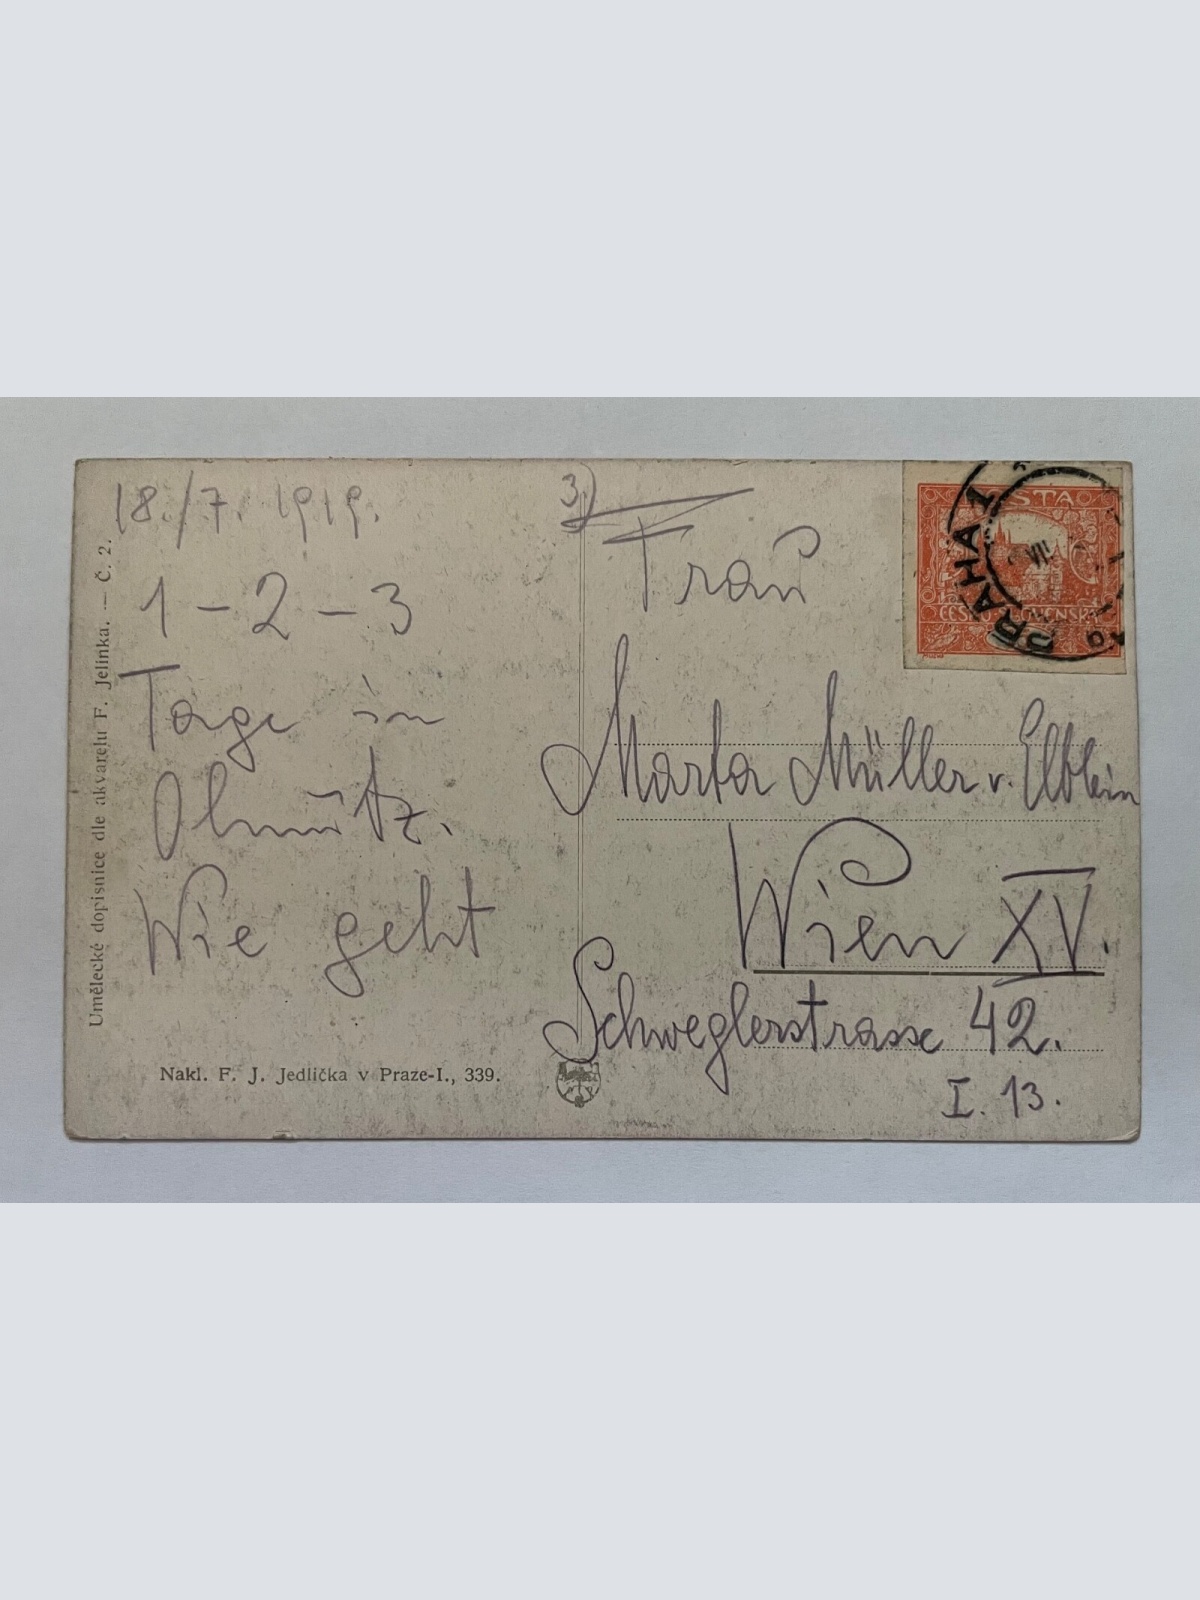 18./7. 1919.
1 - 2 - 3
Tage in
Olmütz.
Wie geht
3)
Frau
Marta Müller v.
Wien XV.
Schweglerstrasse 42.
I. 13.
PRAHA 1
VII
Umělecké dopisnice dle akvarelu F. Jelínka. — Č. 2.
Nakl. F. J. Jedlička v Praze-I., 339.